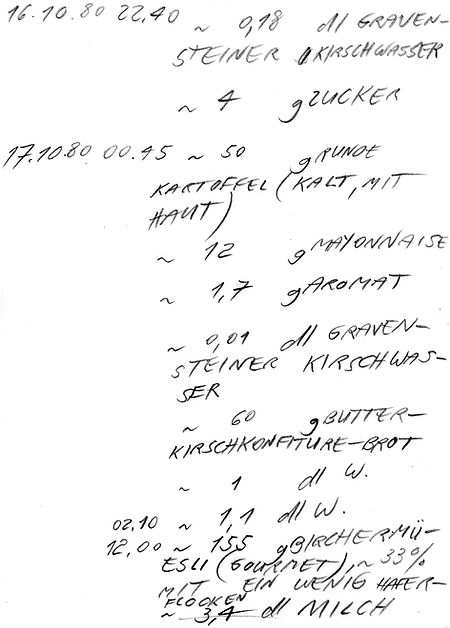 16.10.80 22.40 ~ 0,18 dl GRAVEN-
STEINER KIRSCHWASSER
~ 4 g ZUCKER
17.10.80 00.45 ~ 50 g RUNDE
KARTOFFEL (KALT, MIT
HAUT)
~ 12 g MAYONNAISE
~ 1,7 g AROMAT
~ 0,01 dl GRAVEN-
STEINER KIRSCHWAS-
SER
~ 60 g BUTTER-
KIRSCHKONFITURE-BROT
~ 1 dl W.
02.10 ~ 1,1 dl W.
12,00 ~ 155 g BIRCHERMÜ-
ESLI (GOURMET), ~ 33%
MIT EIN WENIG HAFER-
FLOCKEN
~ 3,4 dl MILCH